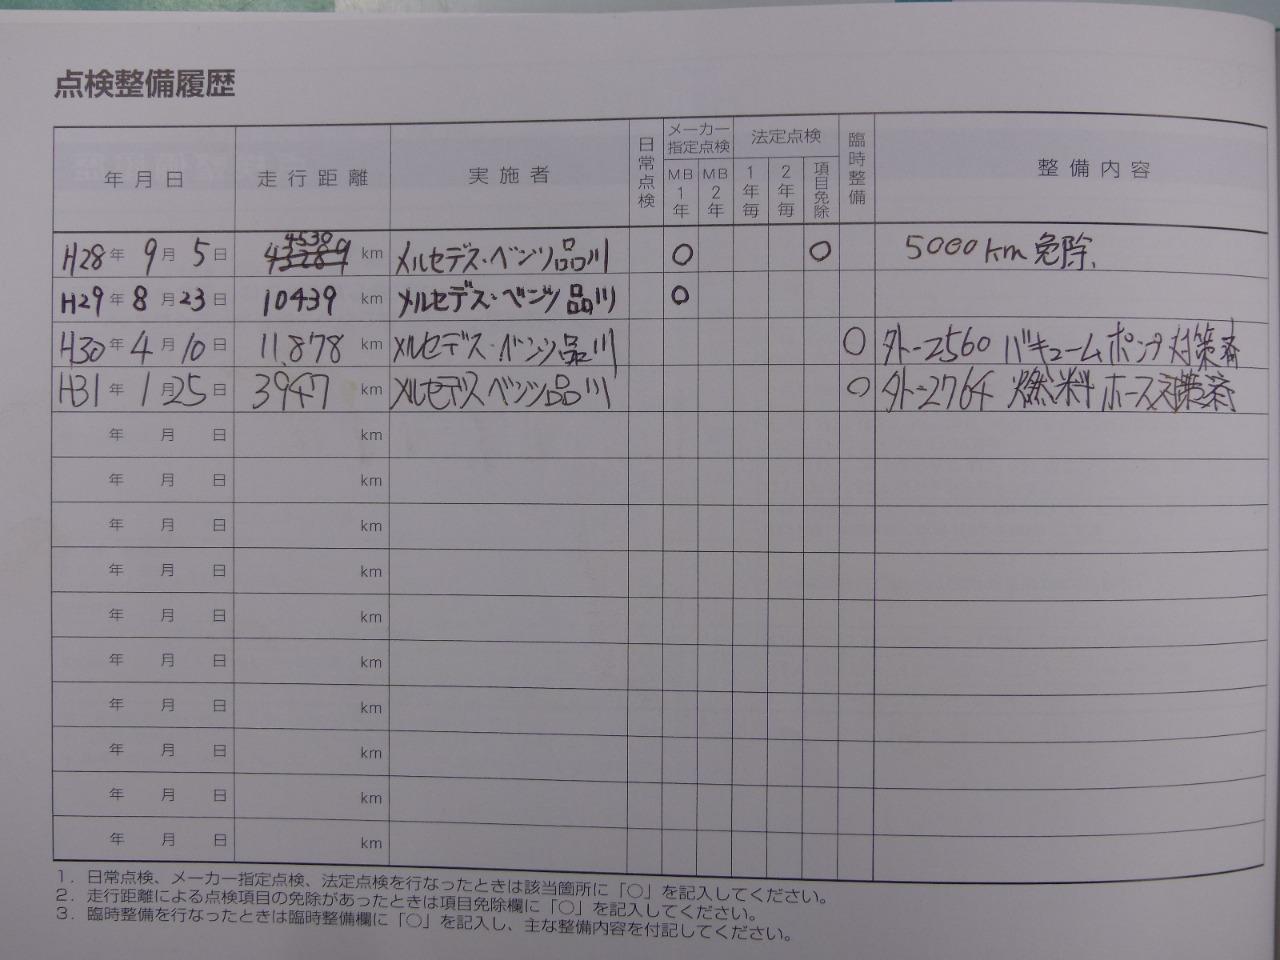 点検整備履歴
年月日 走行距離 実施者 日常点検 メーカー指定点検 MB1年 MB2年 法定点検 1年毎 2年毎 項目免除 臨時整備 整備内容
4530
H28年 9月 5日 43289 km メルセデス・ベンツ品川 ○ ○ 5000km免除、
H29年 8月 23日 10439 km メルセデス・ベンツ品川 ○
H30年 4月 10日 11,878 km メルセデス・ベンツ品川 ○ 外-2560 バキュームポンプ対策済
H31年 1月 25日 3947 km メルセデスベンツ品川 ○ 外-2764 燃料ホース対策済
年 月 日 km
年 月 日 km
年 月 日 km
年 月 日 km
年 月 日 km
年 月 日 km
年 月 日 km
年 月 日 km
年 月 日 km
年 月 日 km
1. 日常点検、メーカー指定点検、法定点検を行なったときは該当箇所に「○」を記入してください。
2. 走行距離による点検項目の免除があったときは項目免除欄に「○」を記入してください。
3. 臨時整備を行なったときは臨時整備欄に「○」を記入し、主な整備内容を付記してください。